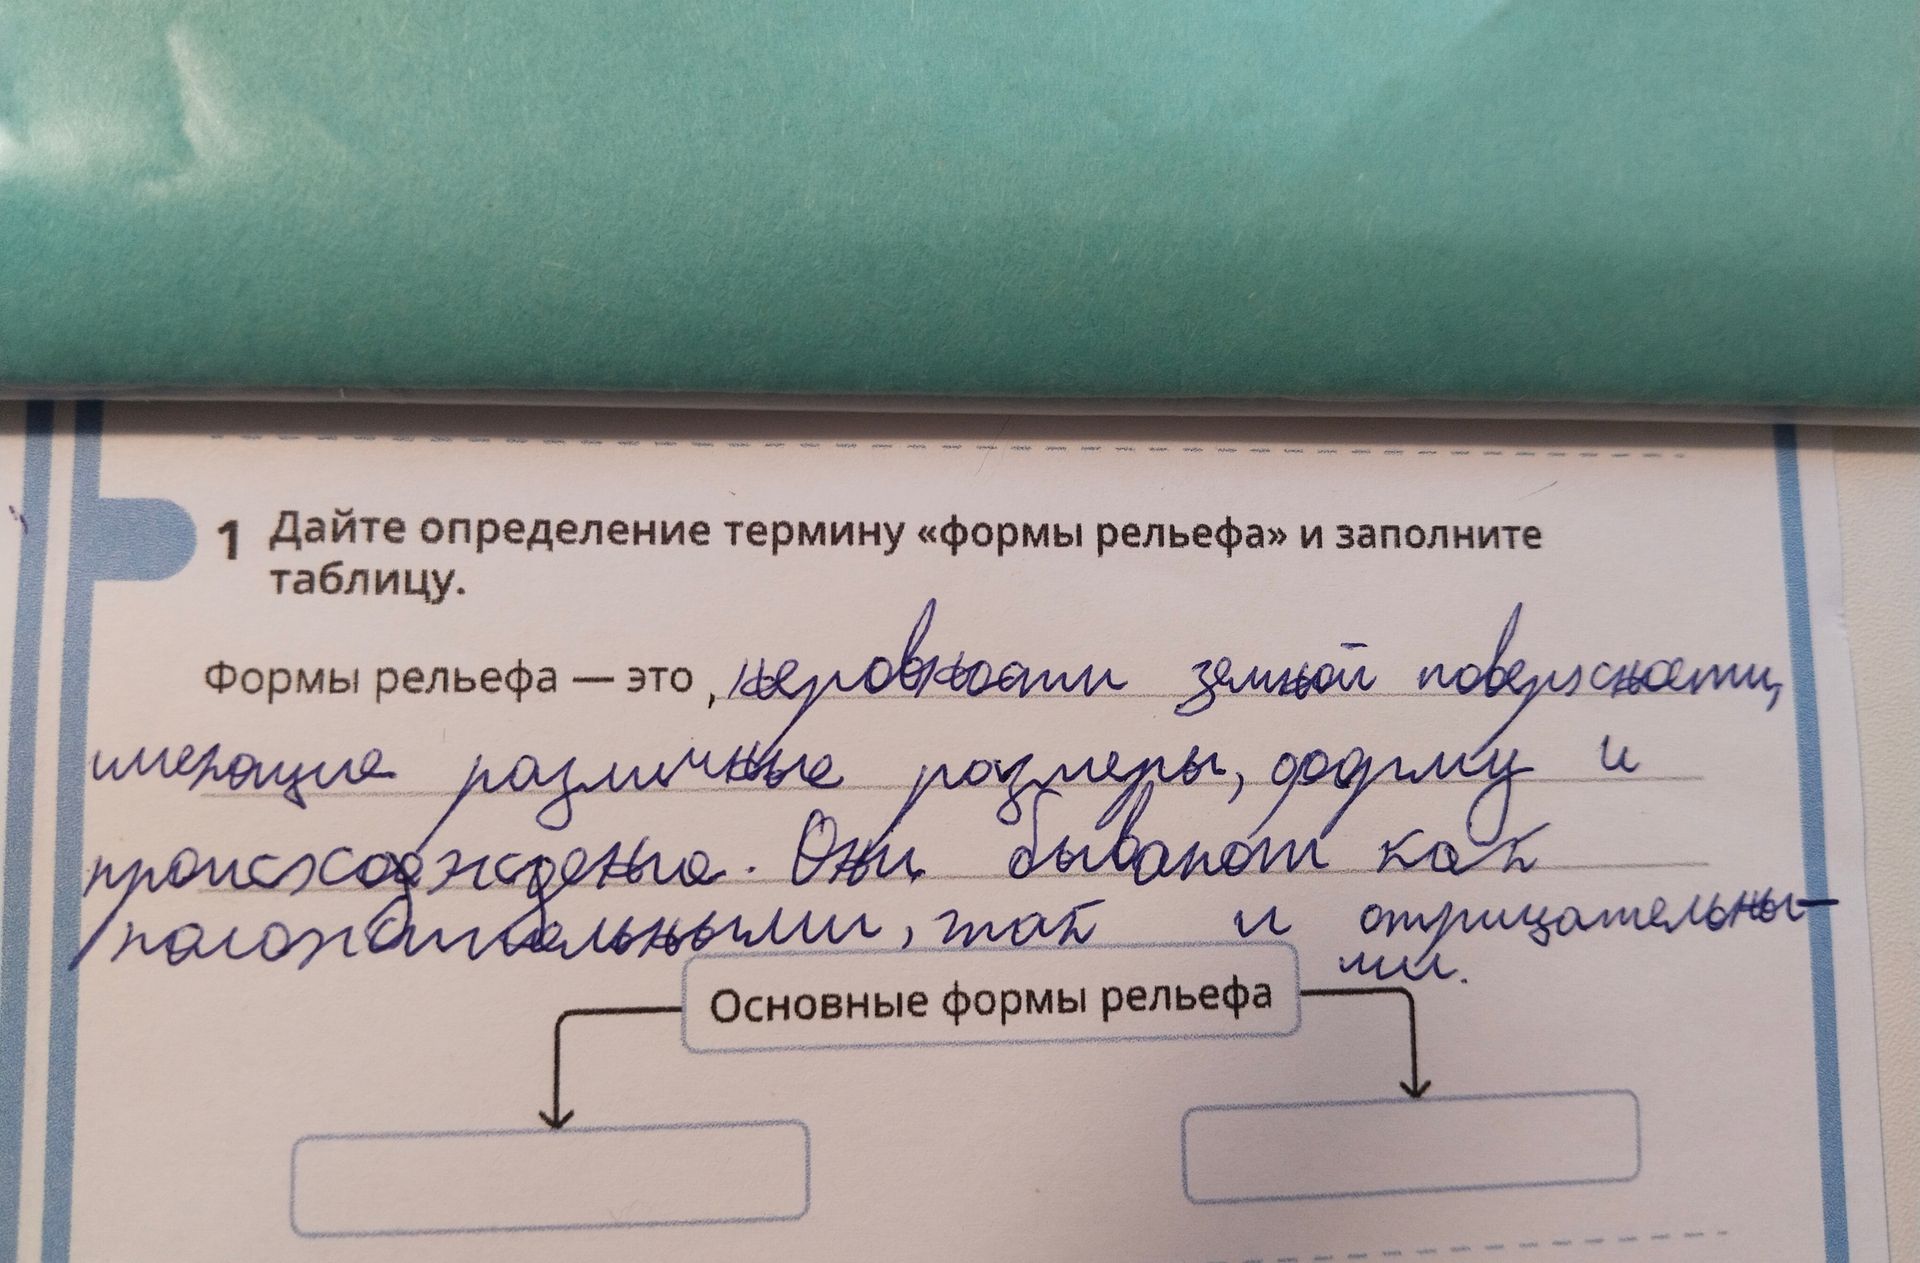 1 Дайте определение термину «формы рельефа» и заполните
таблицу.
Формы рельефа — это , неровности земной поверхности,
имеющие различные размеры, форму и
происхождение. Они бывают как
положительными, так и отрицательны-
ми.
Основные формы рельефа